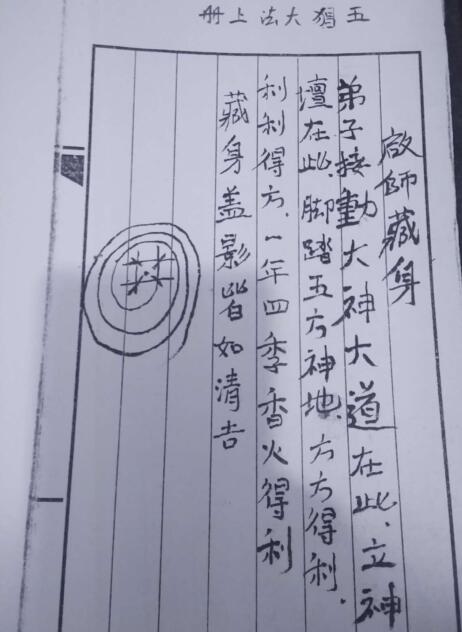 五猖大法上册
啟師藏身
弟子接動大神大道在此、立神
壇在此、脚踏五方神地、方方得利、
利利得方、一年四季香火得利
藏身盖影皆如清吉